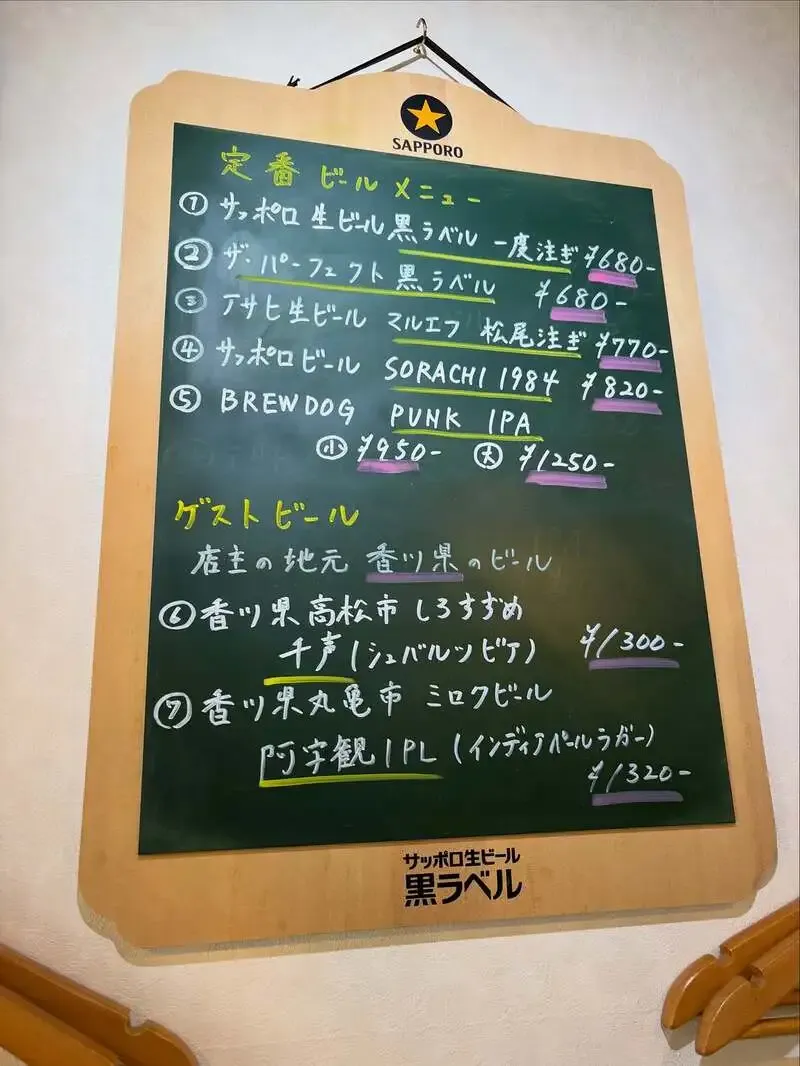 SAPPORO
定番ビールメニュー
① サッポロ生ビール黒ラベル 一度注ぎ ¥680-
② ザ・パーフェクト黒ラベル ¥680-
③ アサヒ生ビール マルエフ 松尾注ぎ ¥770-
④ サッポロビール SORACHI 1984 ¥820-
⑤ BREWDOG PUNK IPA
小 ¥950- 大 ¥1250-
ゲストビール
店主の地元 香川県のビール
⑥ 香川県高松市 しろすずめ
千声(シュバルツビア) ¥1300-
⑦ 香川県丸亀市 ミロクビール
阿字観IPL (インディアペールラガー)
¥1320-
サッポロ生ビール
黒ラベル